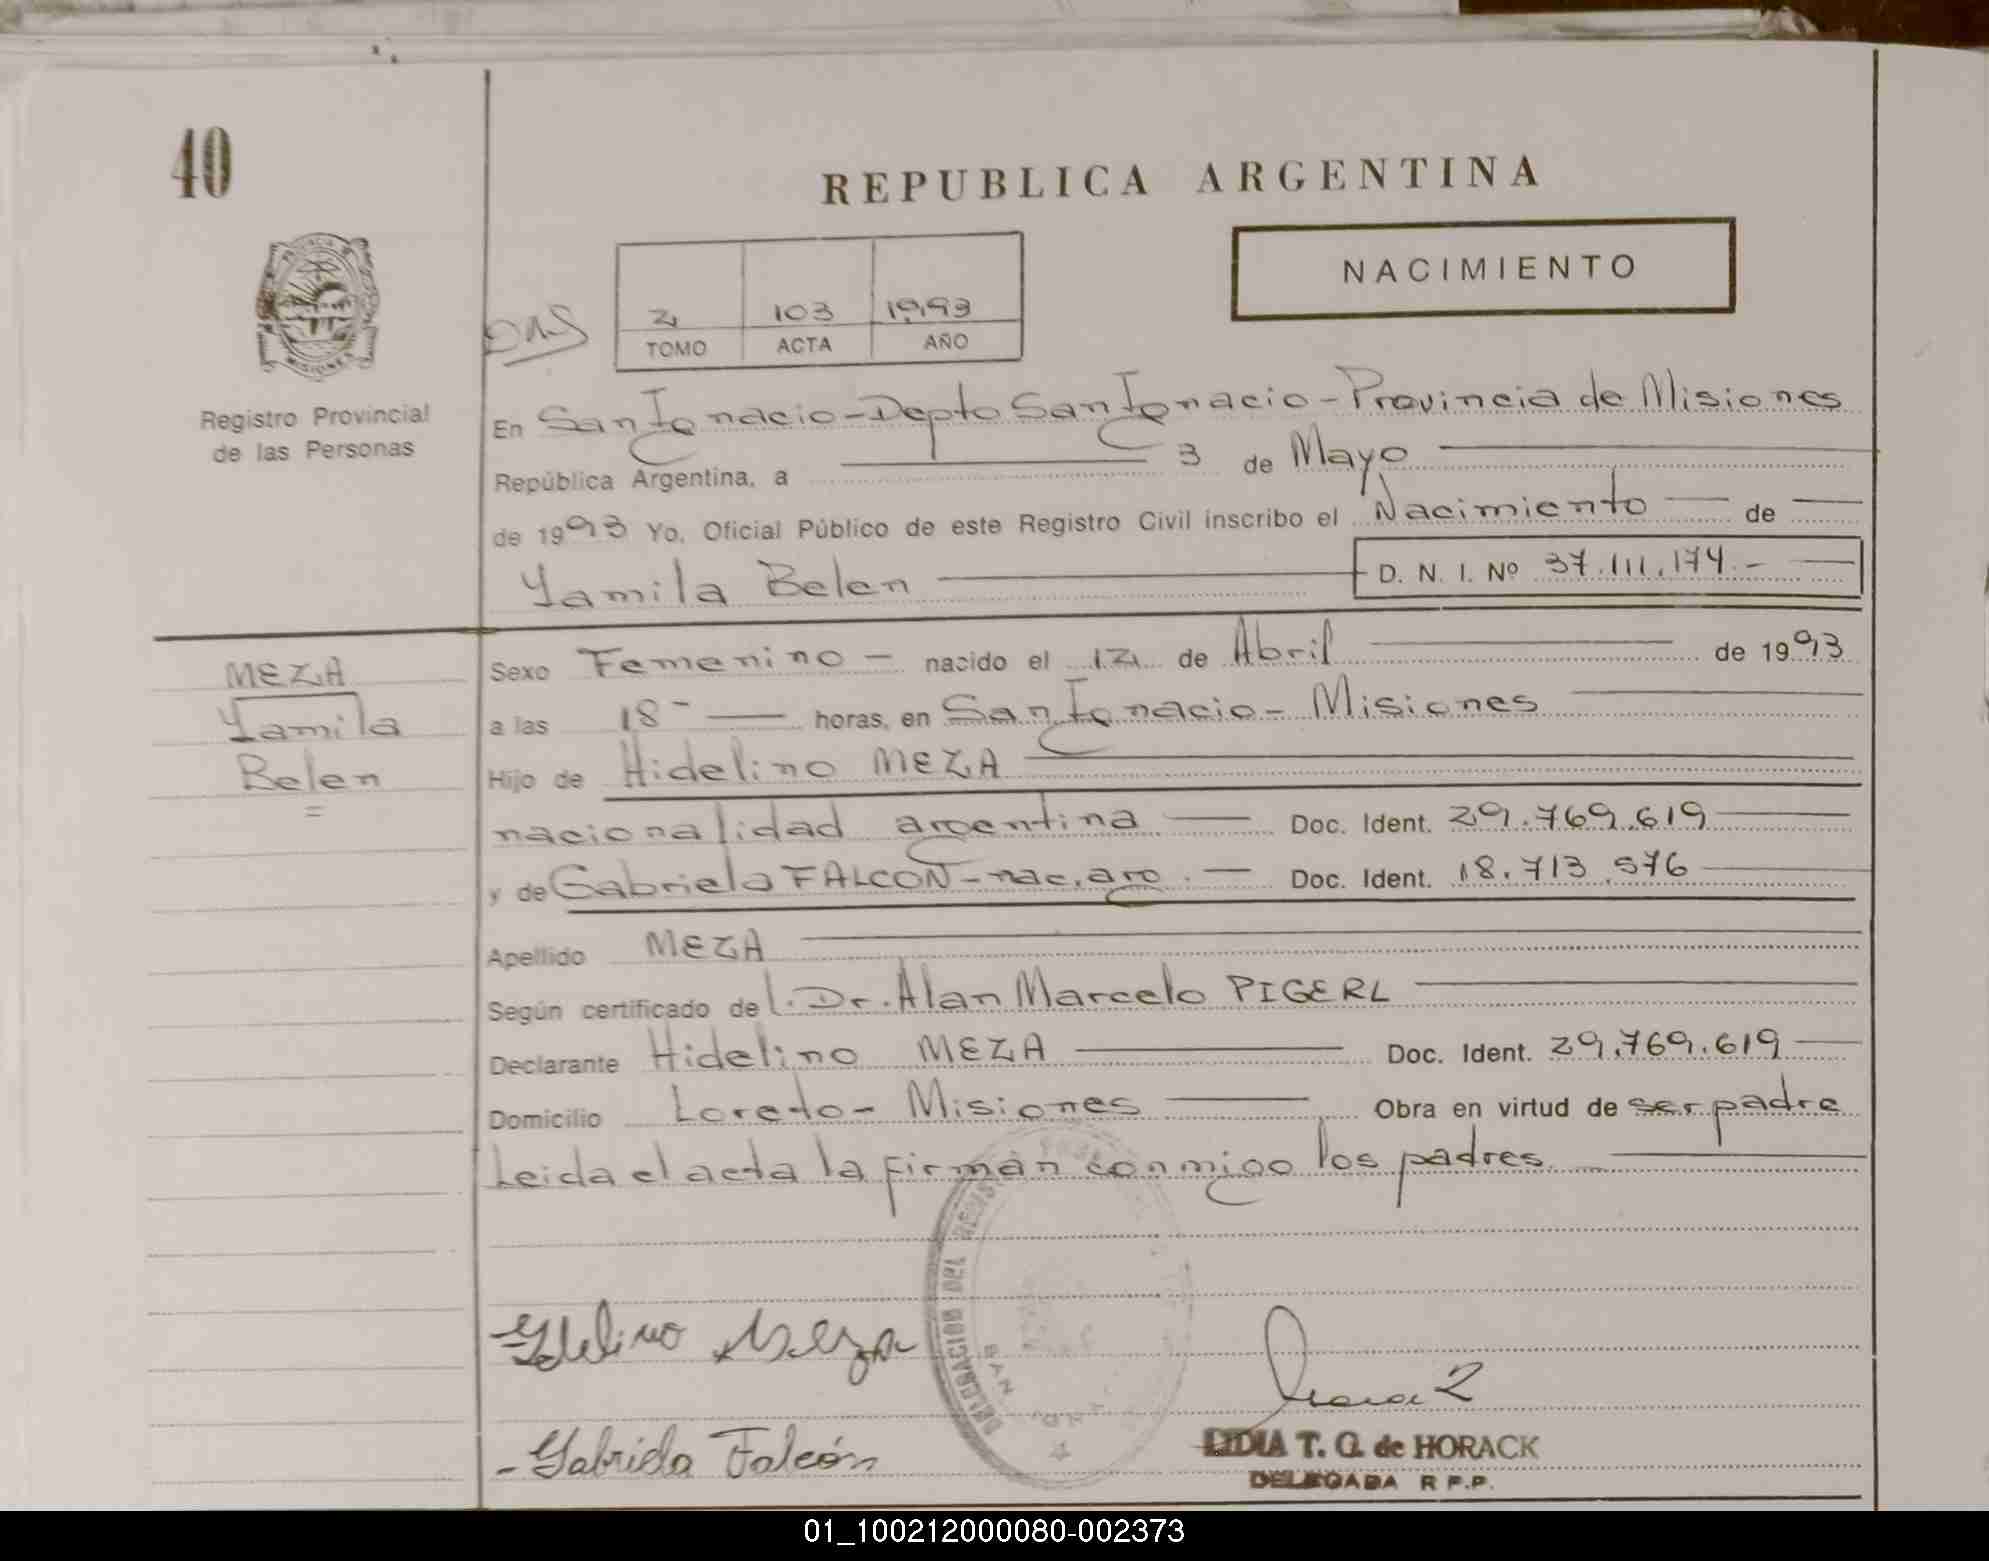 40
REPUBLICA ARGENTINA
NACIMIENTO
2 103 1993
TOMO ACTA AÑO
Registro Provincial
de las Personas
En San Ignacio - Depto San Ignacio - Provincia de Misiones
República Argentina, a 3 de Mayo
de 1993 Yo, Oficial Público de este Registro Civil inscribo el Nacimiento de
Yamila Belen D. N. I. Nº 37.111.174.-
MEZA
Yamila
Belen
Sexo Femenino - nacido el 12 de Abril de 1993
a las 18 - horas, en San Ignacio - Misiones
Hijo de Hidelino MEZA
nacionalidad argentina Doc. Ident. 29.769.619
y de Gabriela FALCON - nac. arg. Doc. Ident. 18.713.576
Apellido MEZA
Según certificado del Dr. Alan Marcelo PIGERL
Declarante Hidelino MEZA Doc. Ident. 29.769.619
Domicilio Loreto - Misiones Obra en virtud de ser padre
Leida el acta la firman conmigo los padres.
DELEGACION DEL REGIST
SAN
Meza
- Gabriela Falcón
LIDIA T. G. de HORACK
DELEGADA R.P.P.
01_100212000080-002373